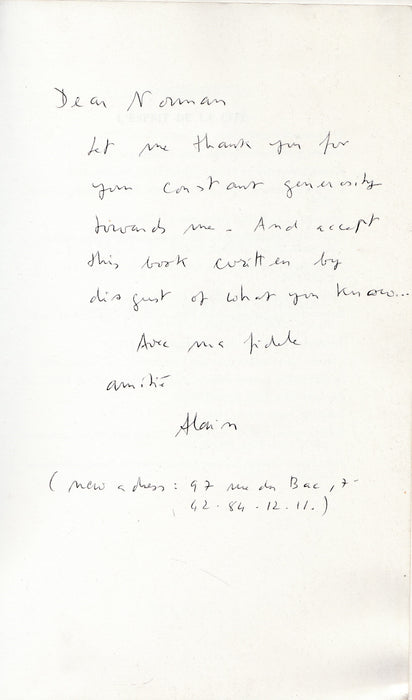 Dear Norman
L'ESPRIT DE LA CITÉ
Let me thank you for
your constant generosity
towards me. And accept
this book written by
disgust of what you know...
Avec ma fidele
amitié
Alain
(new adress: 97 rue du Bac, 7-
42.84.12.11.)